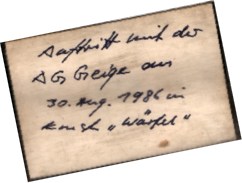 Auftritt mit der
AG Geige am
30. Aug. 1986 in
"Würfel"